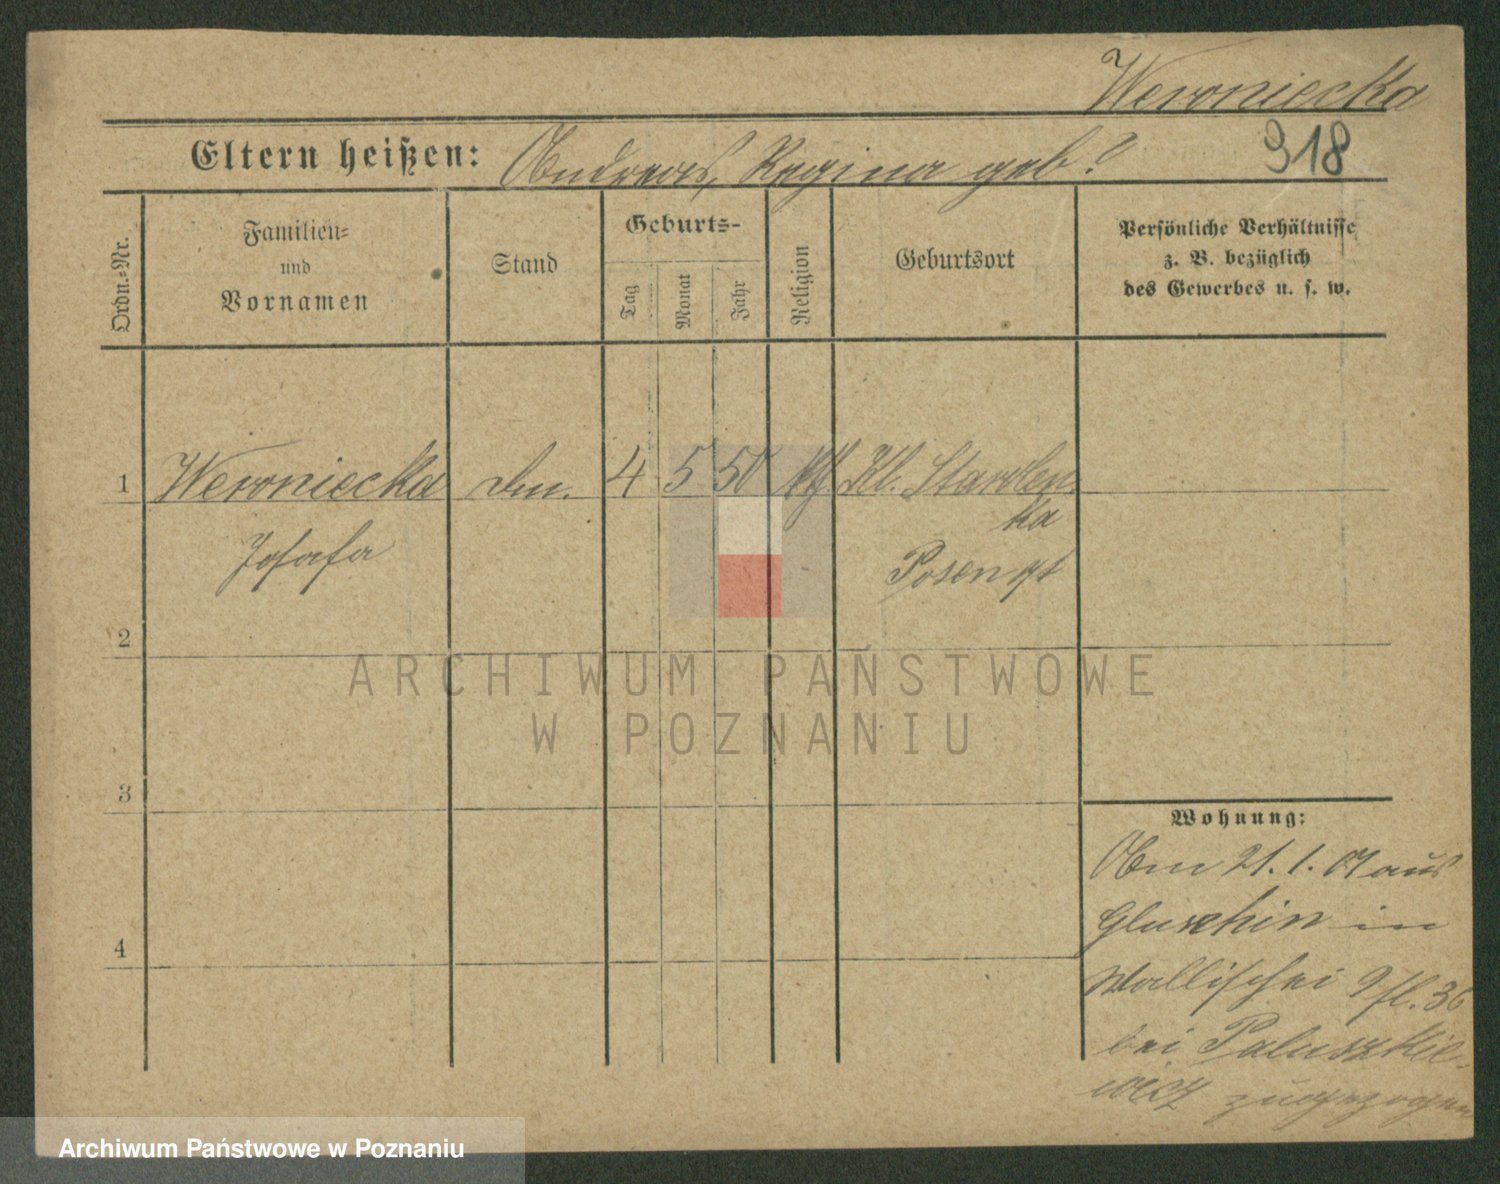 Weroniecka
Eltern heißen: Andreas, Regina geb?
318
Ordn.-Nr.
Familien-
und
Vornamen
Stand
Geburts-
Tag
Monat
Jahr
Religion
Geburtsort
Persönliche Verhältnisse
z. B. bezüglich
des Gewerbes u. s. w.
1 Weroniecka 4 5 50 kth Kl. Starolen
ka
Josefa
Posen
2
3
4
Wohnung:
Am 21. 1. 07 aus
Gluschin in
Wallischei 36
bei Paluszkie-
wicz zugezogen
ARCHIWUM PAŃSTWOWE
W POZNANIU
Archiwum Państwowe w Poznaniu